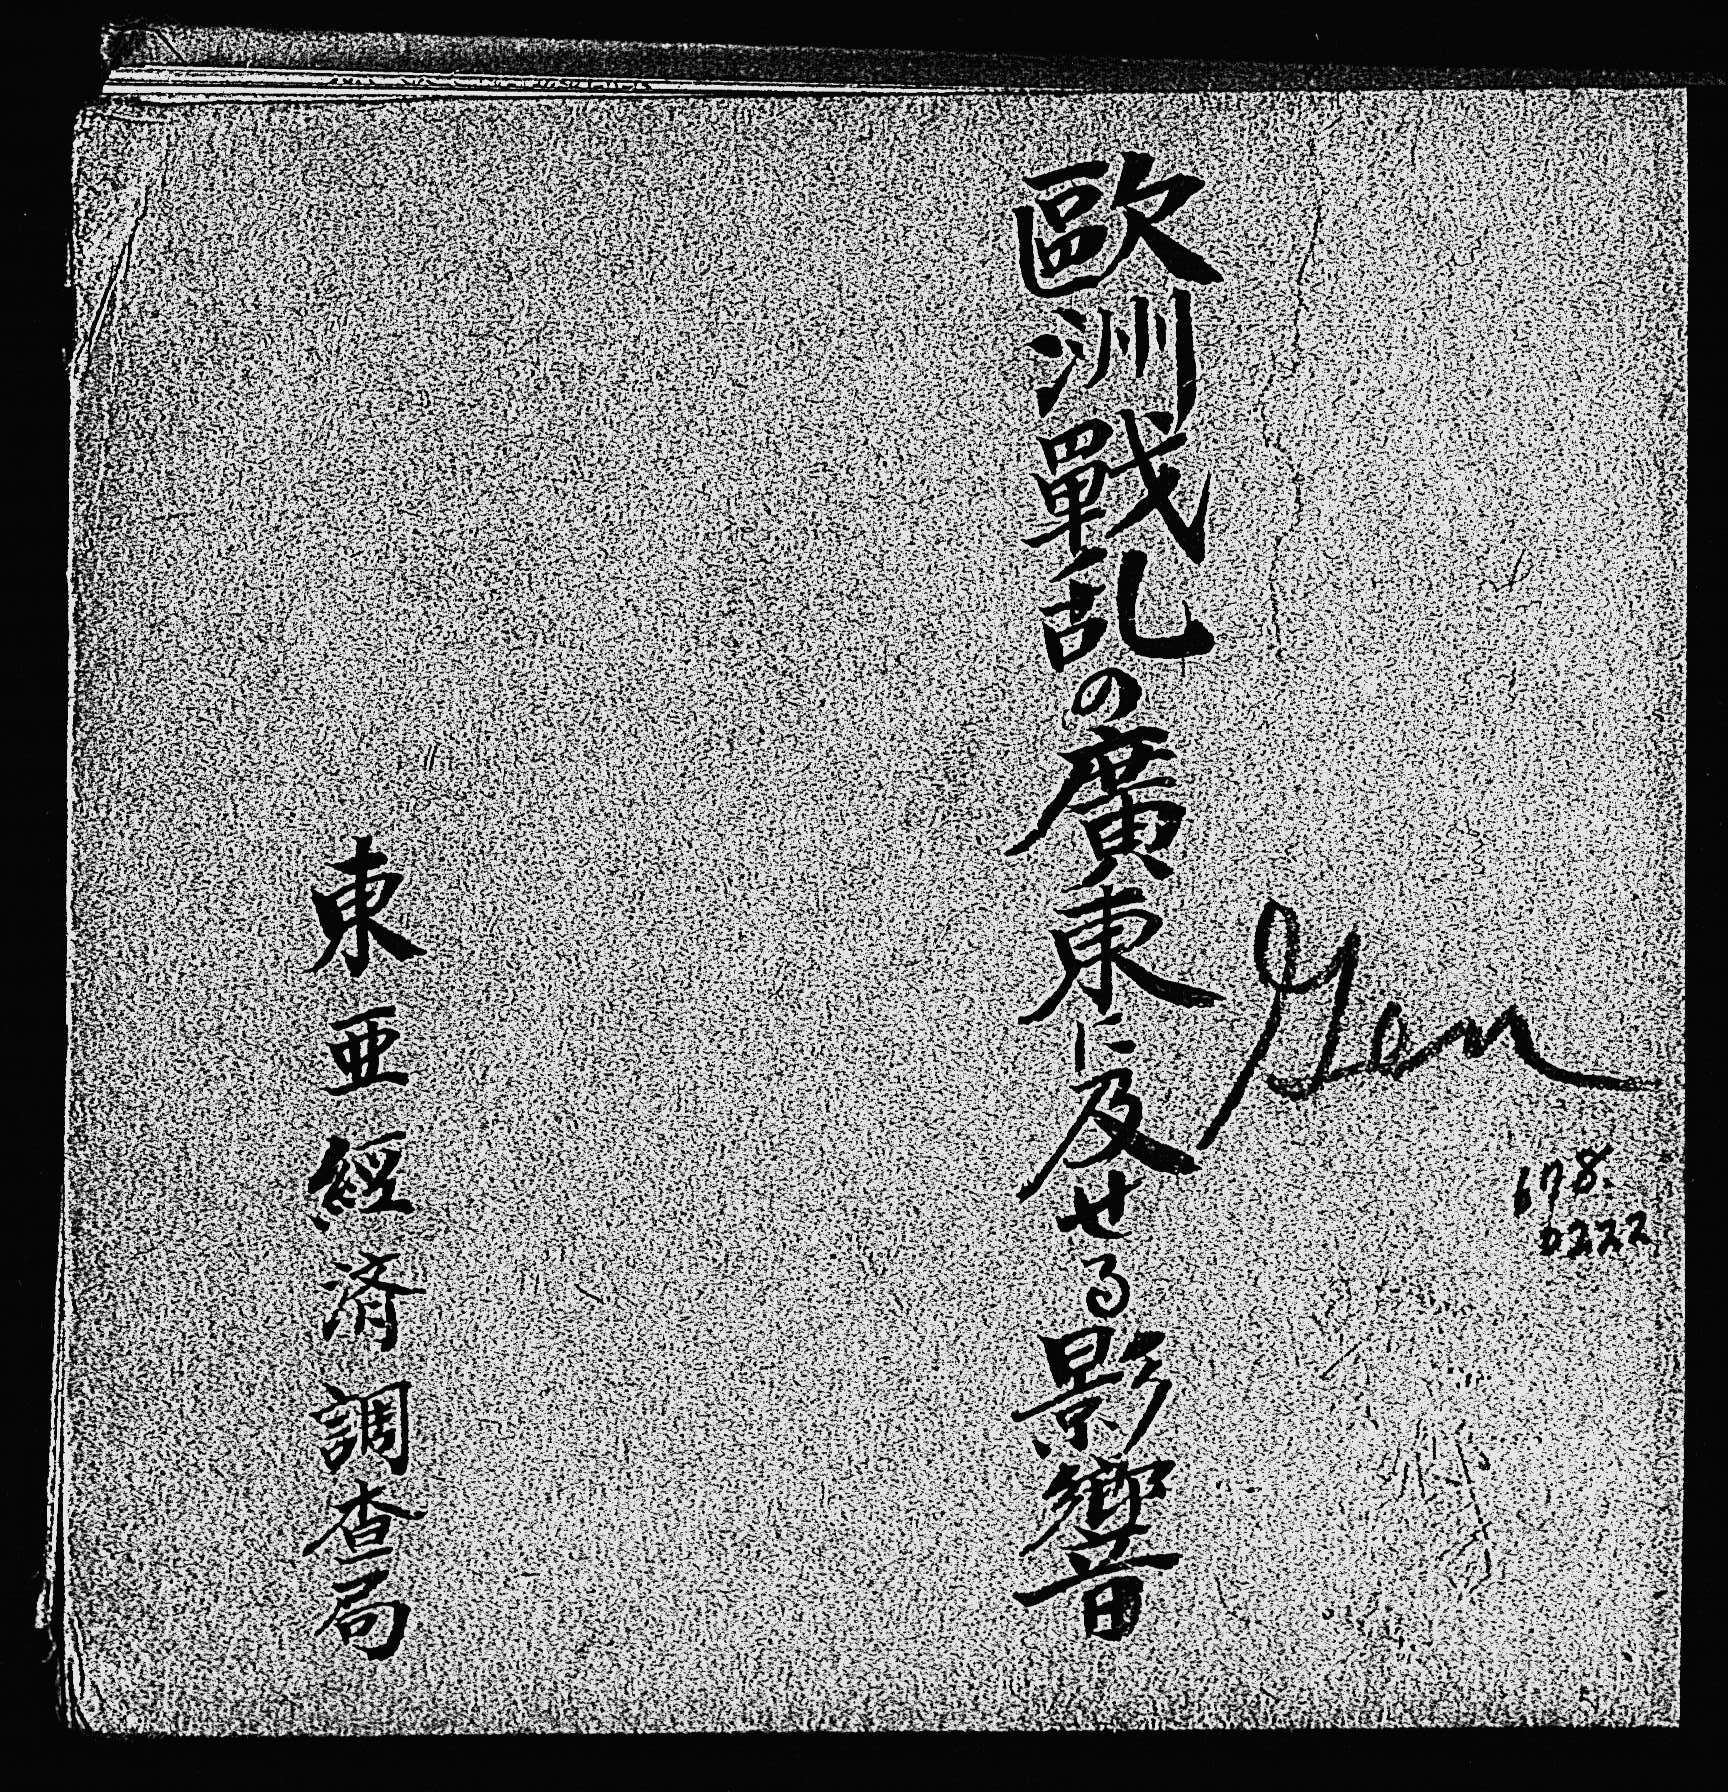 歐洲戰乱の廣東に及せる影響
678.
D222
東亜經済調査局